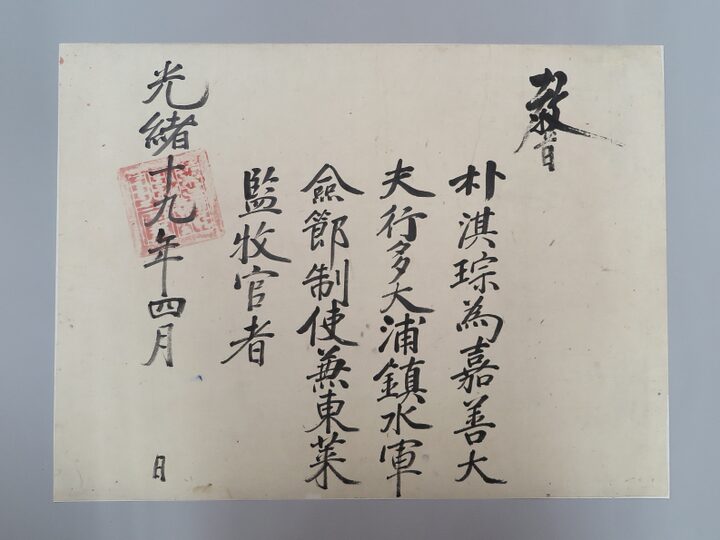 教旨
朴淇琮為嘉善大
夫行多大浦鎮水軍
僉節制使蒹東萊
監牧官者
光緒十九年四月 日